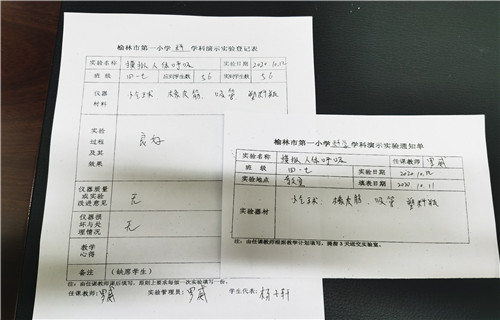 榆林市第一小学 科 学科演示实验登记表
实验名称 模拟人体呼吸 实验日期 2020.10.12
班级 四一七 应到学生数 56 实到学生数 56
仪器材料 气球、橡皮筋、吸管、塑料瓶
实验过程及其效果 良好
仪器质量或实验改进意见 无
仪器损坏与处理情况 无
教学心得
备注 (缺席学生)
注:由任课教师课后填写,原则上要求每做一次实验填写一份。
任课教师: 罗威 实验管理员: 罗威 学生代表: 轩
榆林市第一小学 科学 学科演示实验通知单
实验名称 模拟人体呼吸 任课教师 罗威
班级 四一七 实验日期 2020.10.12
实验地点 教室 填表日期 2020.10.11
实验器材 气球、橡皮筋、吸管、塑料瓶
注:由任课教师根据教学计划填写,提前3天送交实验室。